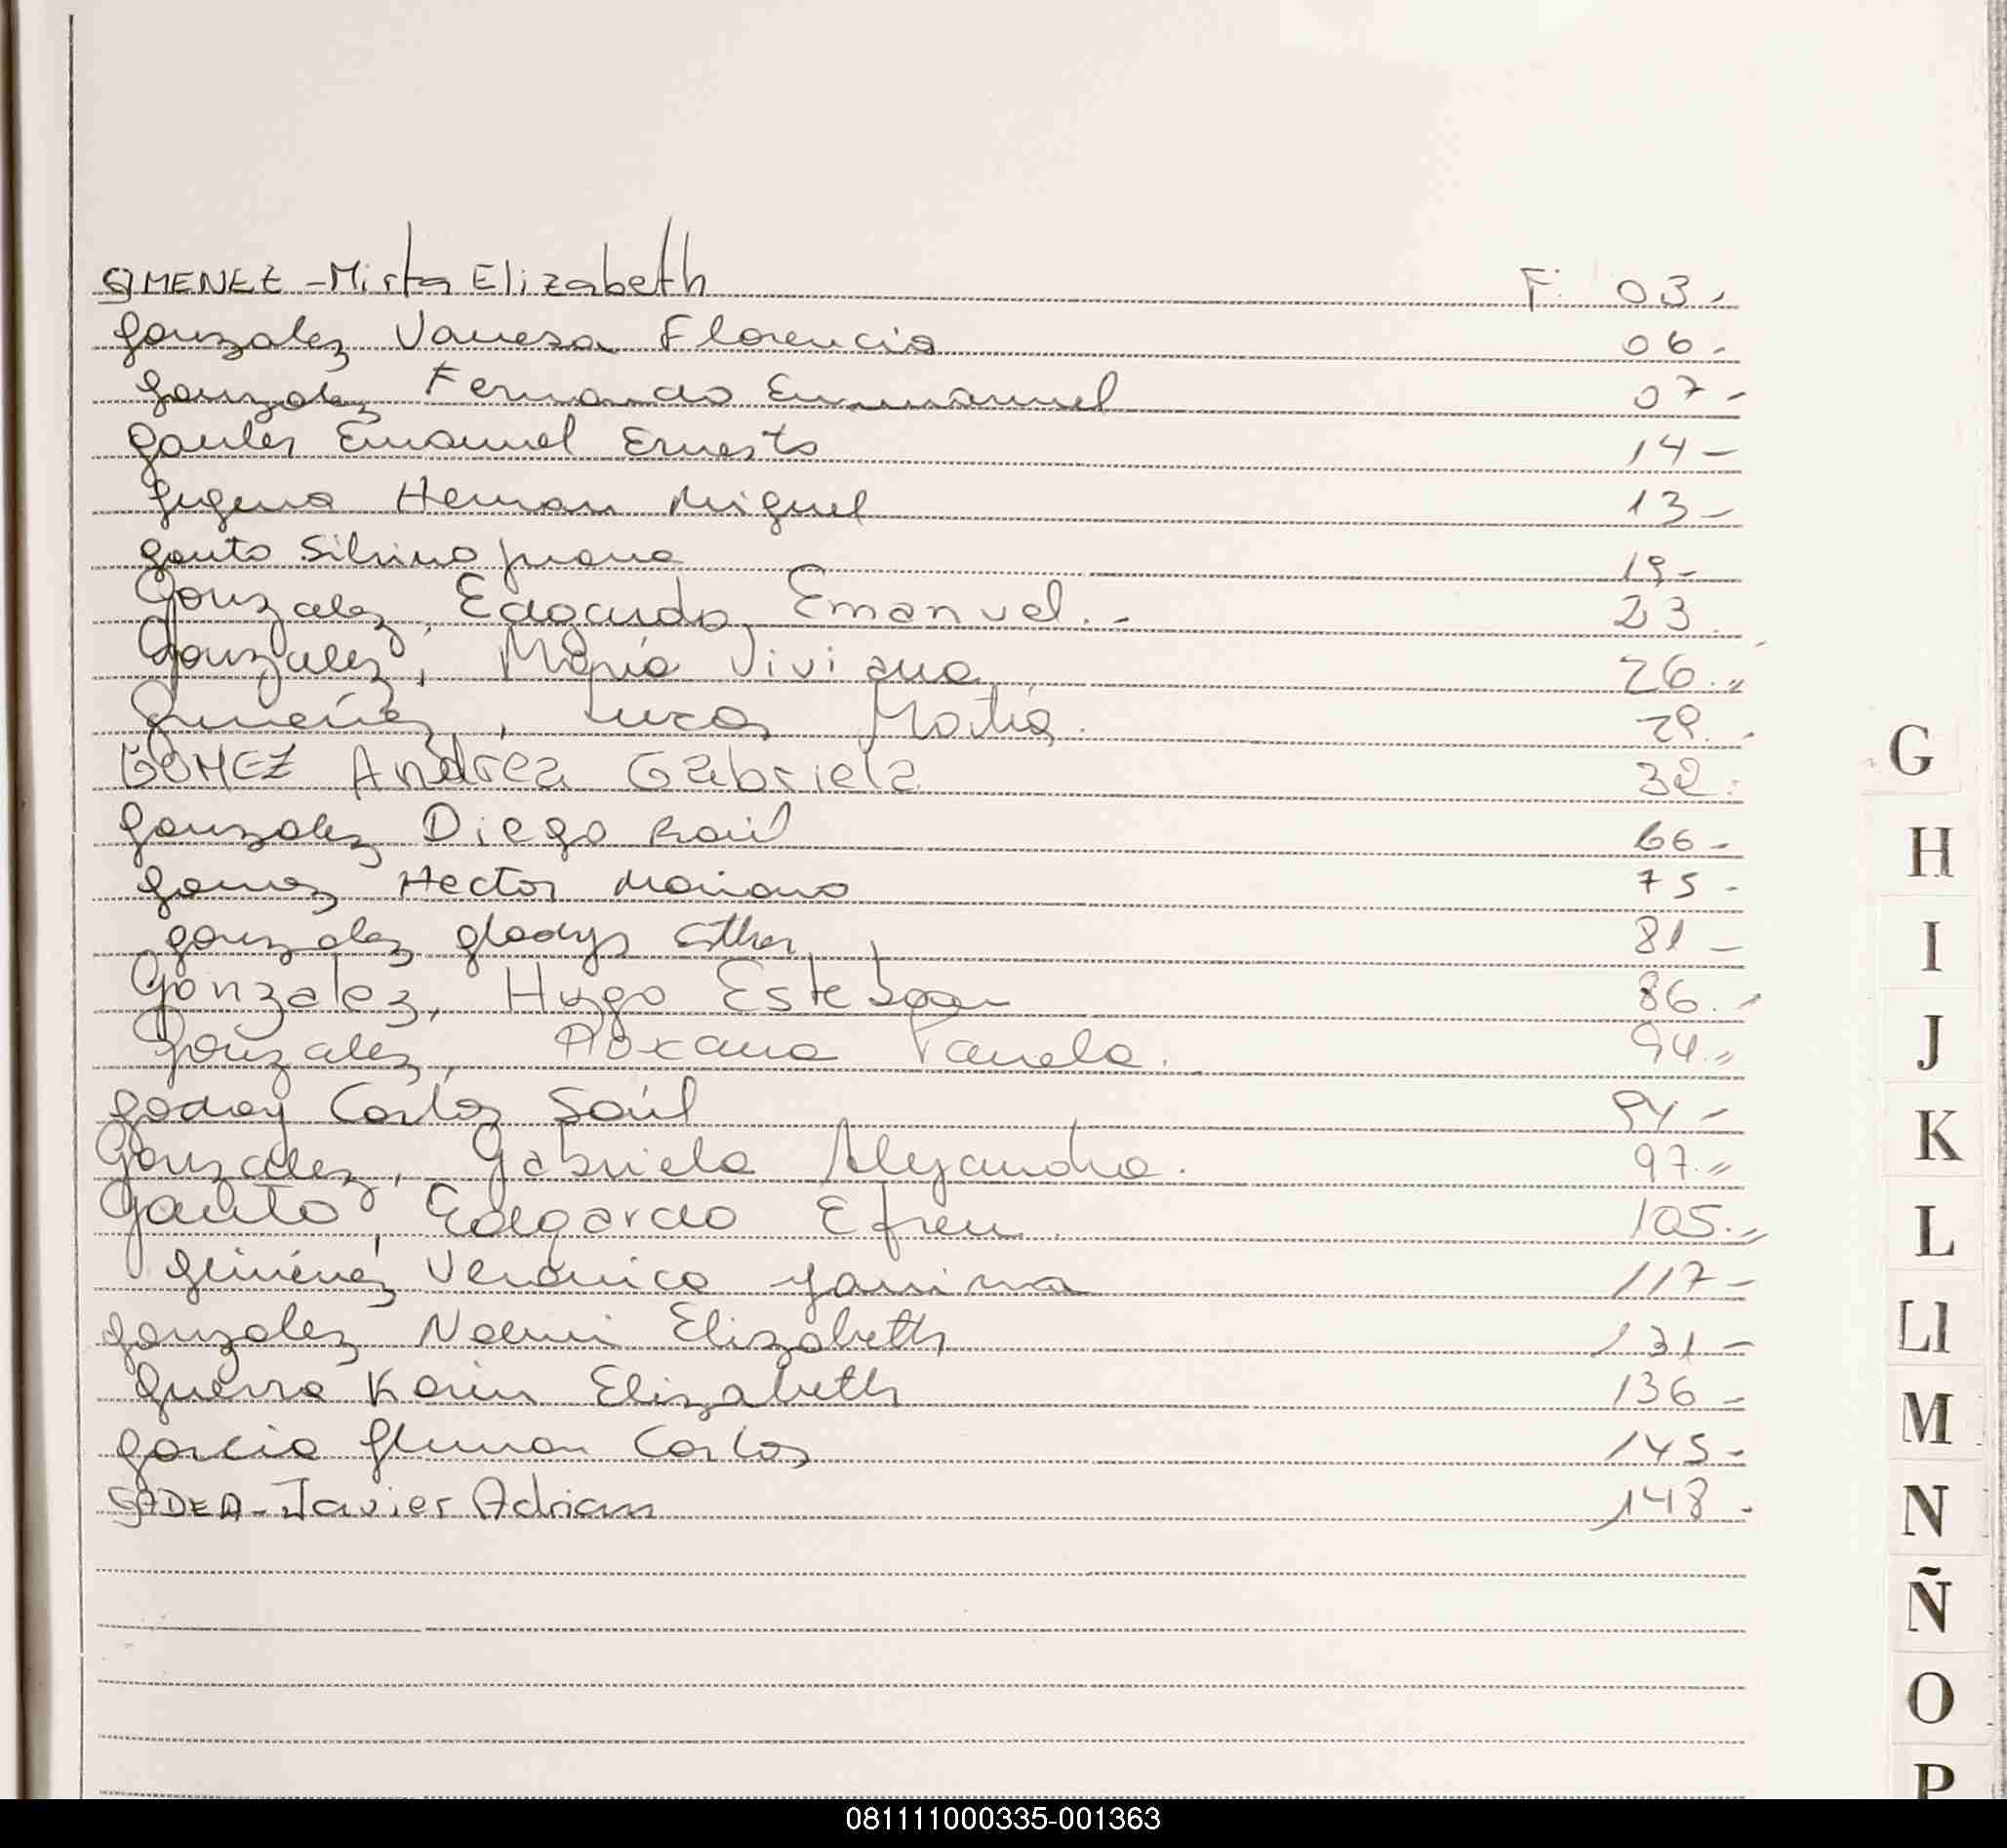 GIMENEZ - Mirta Elizabeth F. 03.-
Gonzalez Vanesa Florencia 06.-
Gonzalez Fernando Emmanuel 07-
Gauler Emanuel Ernesto 14-
Gigena Hernan Miguel 13-
Gauto Silvina Juana 19-
Gonzalez, Edgardo Emanuel.- 23
Gonzalez, Maria Viviana 26.,,
Gimenez, Lucas Matia. 29.-
GOMEZ Andrea Gabriela 32.
Gonzalez Diego Raúl 66-
Gomez Hector Mariano 75-
Gonzalez Gladys Esther 81-
Gonzalez, Hugo Esteban 86.-
Gonzalez, Roxana Pamela. 94.,,
Godoy Carlos Saúl 94-
Gonzalez, Gabriela Alejandra. 97.,,
Gauto, Edgardo Efren. 105.,,
Giménez Veronica Yanina 117-
Gonzalez Noemi Elizabeth 131-
Guerra Karin Elizabeth 136-
Garcia German Carlos 145-
GADEA - Javier Adrian 148-
G
H
I
J
K
L
Ll
M
N
Ñ
O
P
081111000335-001363